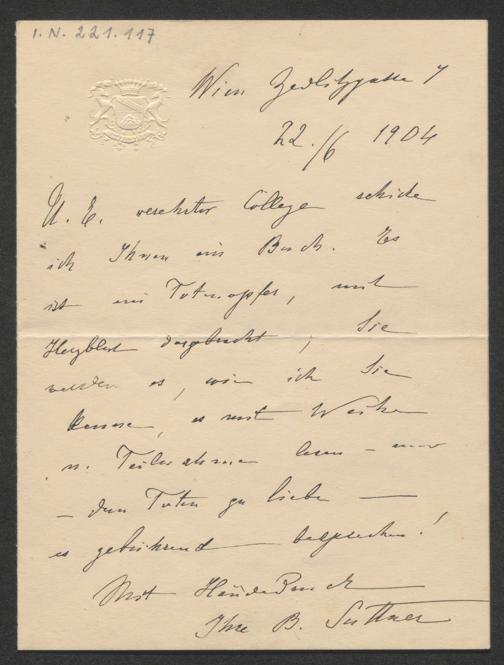 I. N. 221.117
Wien Zedlitzgasse 7
22./6 1904
U. E. verehrter College schicke
ich Ihnen ein Buch. Es
ist ein Totenopfer, mit
Herzblut dargebracht; Sie
werden es, wie ich Sie
kenne, mit
u. Teilnahme lesen – und
– dem Toten zu liebe –
es gebührend besprechen!
Mit Händedruck
Ihre B. Suttner